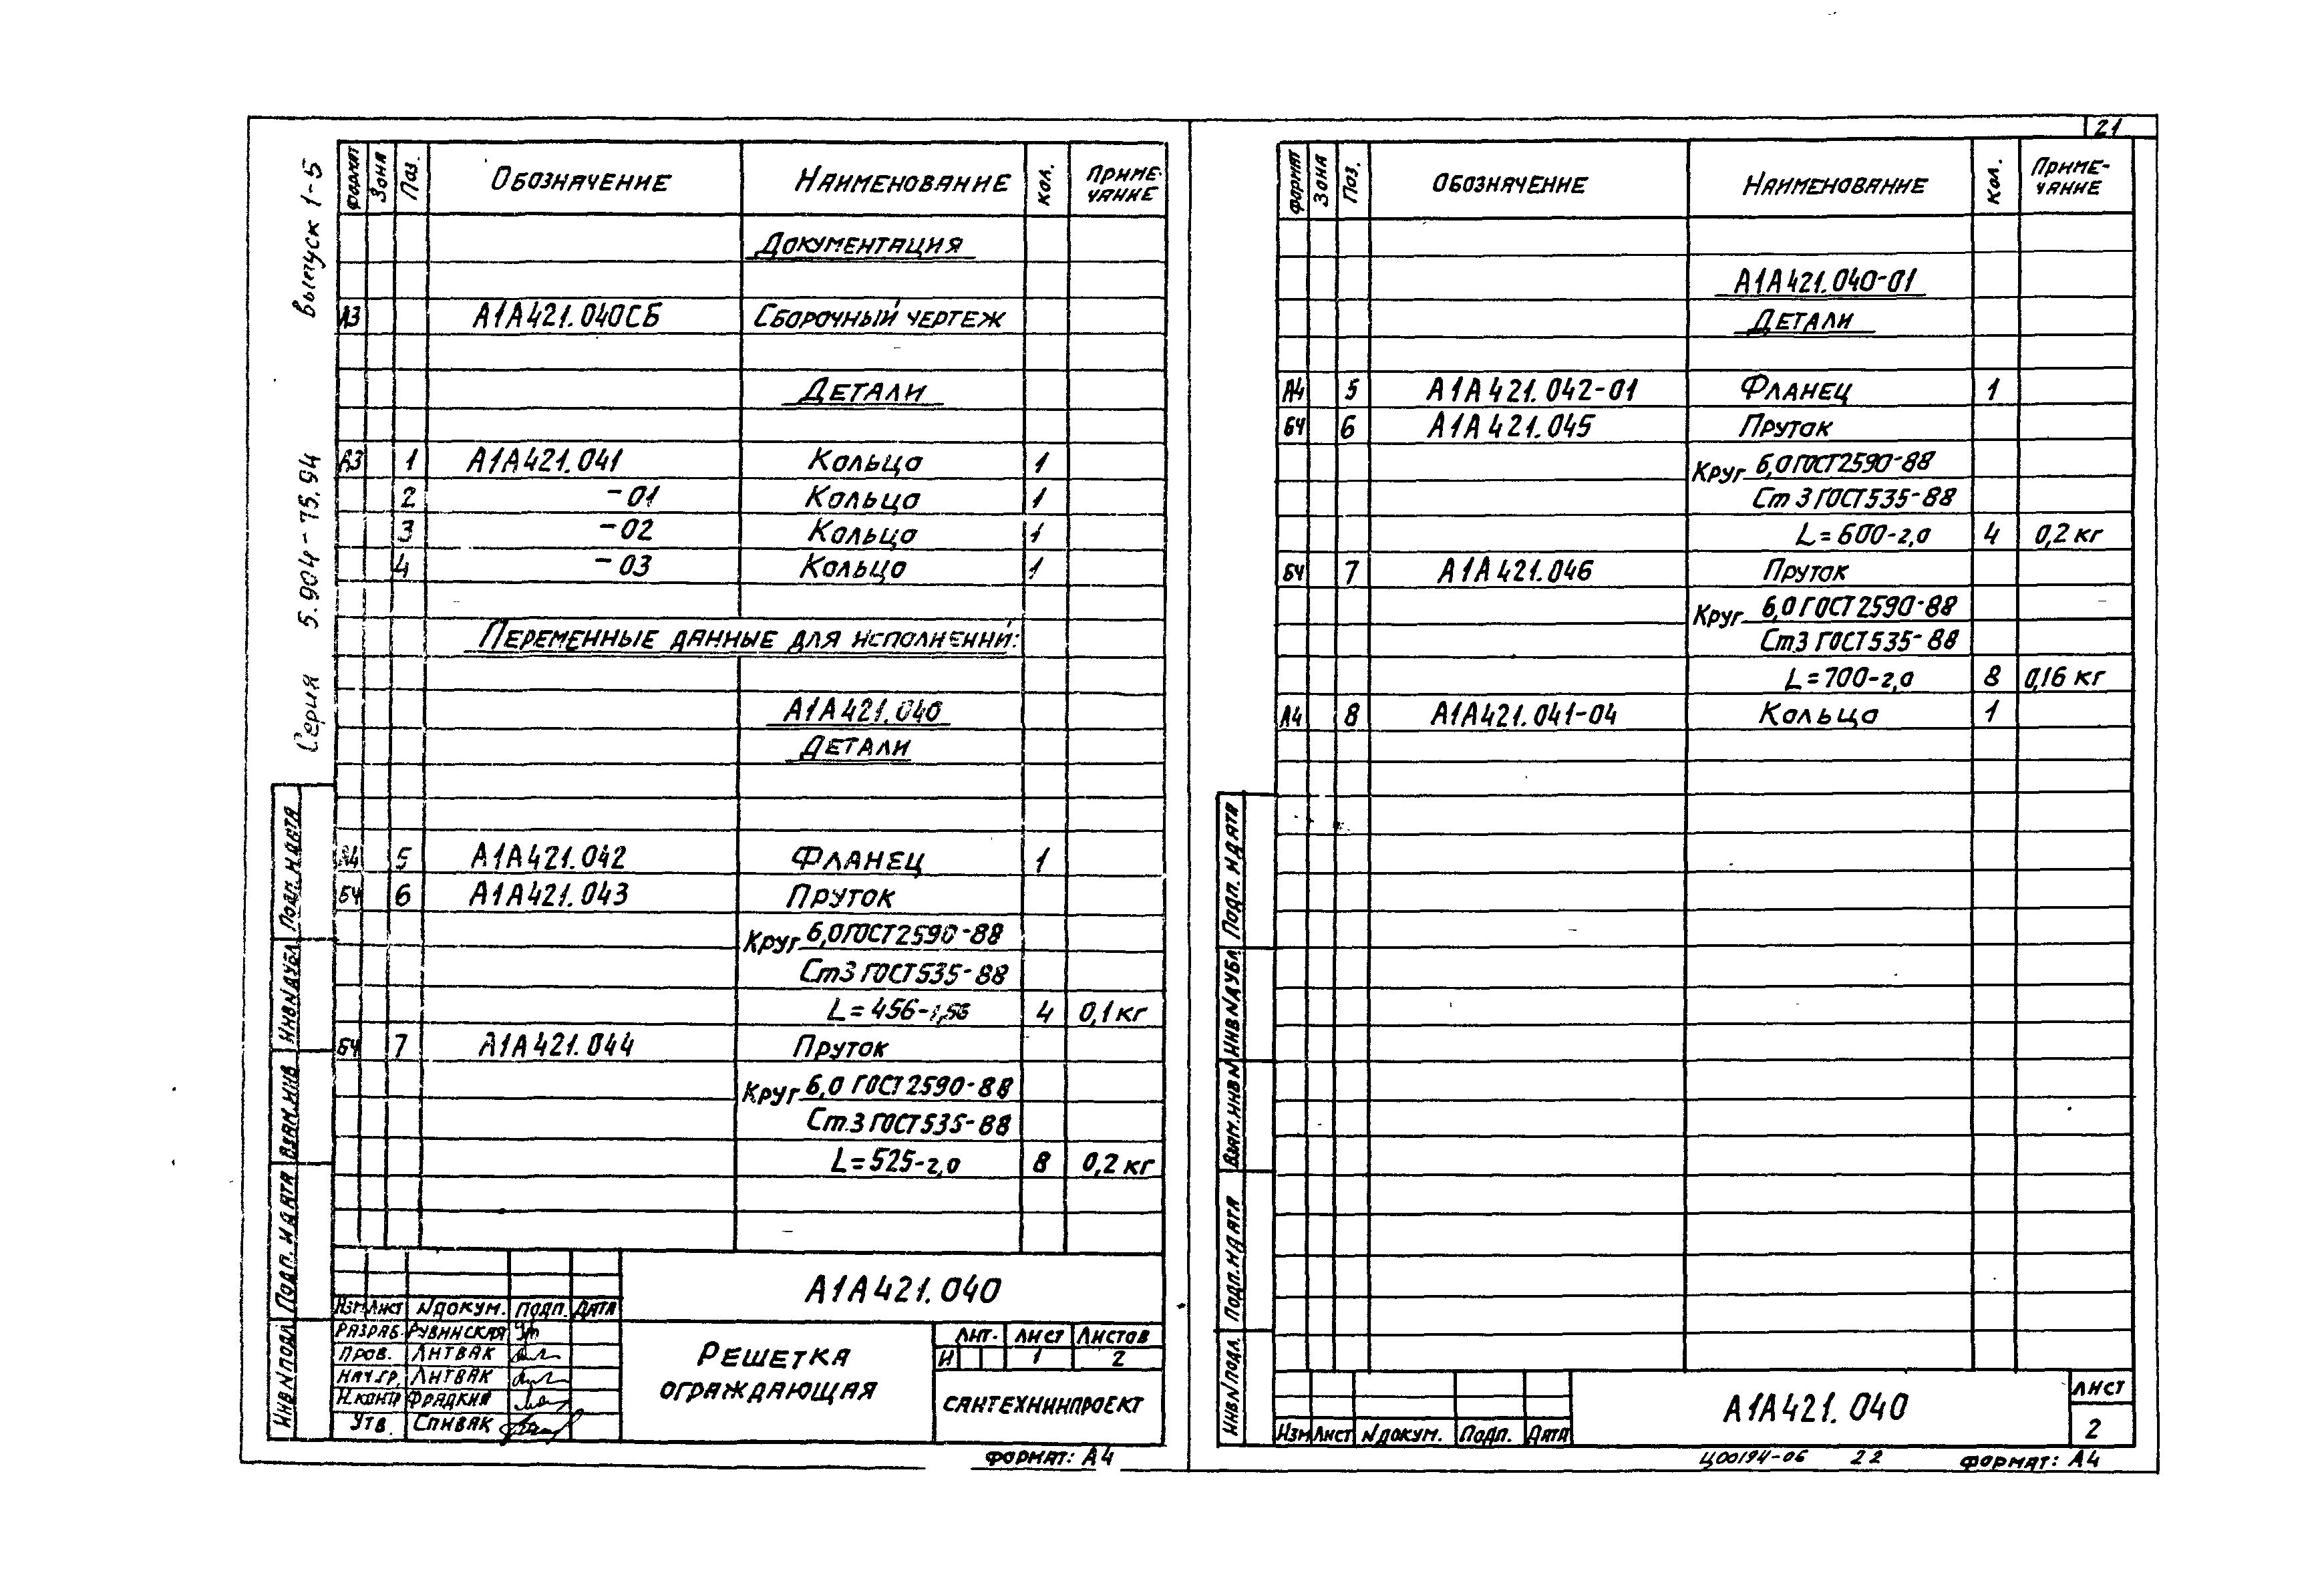 Серия 5.904-75.94 Выпуск 1-5
Формат Зона Поз. Обозначение Наименование Кол. Приме-
чание
Документация
А3 А1А421.040СБ Сборочный чертеж
Детали
А3 1 А1А421.041 Кольцо 1
2 -01 Кольцо 1
3 -02 Кольцо 1
4 -03 Кольцо 1
Переменные данные для исполнений:
А1А421.040
Детали
А4 5 А1А421.042 Фланец 1
БЧ 6 А1А421.043 Пруток
Круг 6,0 ГОСТ2590-88
Ст3 ГОСТ535-88
L=456-1,56 4 0,1 кг
БЧ 7 А1А421.044 Пруток
Круг 6,0 ГОСТ2590-88
Ст.3 ГОСТ535-88
L=525-2,0 8 0,2 кг
А1А421.040
Изм Лист N докум. Подп. Дата
Разраб. Рувинская
Пров. Литвак
Нач.гр. Литвак
Н.контр Фрадкин
Утв. Спивак
Решетка
ограждающая
Лит. Лист Листов
И 1 2
Сантехниипроект
Формат: А4
Инв N подл Подп. и дата Взам.инв Инв N дубл Подп. и дата
21
Формат Зона Поз. Обозначение Наименование Кол. Приме-
чание
А1А421.040-01
Детали
А4 5 А1А421.042-01 Фланец 1
БЧ 6 А1А421.045 Пруток
Круг 6,0 ГОСТ2590-88
Ст 3 ГОСТ535-88
L=600-2,0 4 0,2 кг
БЧ 7 А1А421.046 Пруток
Круг 6,0 ГОСТ2590-88
Ст3 ГОСТ535-88
L=700-2,0 8 0,16 кг
А4 8 А1А421.041-04 Кольцо 1
Инв N подл. Подп. и дата Взам.инв N Инв N дубл Подп. и дата
Изм Лист N докум. Подп. Дата
А1А421.040
Лист
2
Ц00194-06 22 Формат: А4